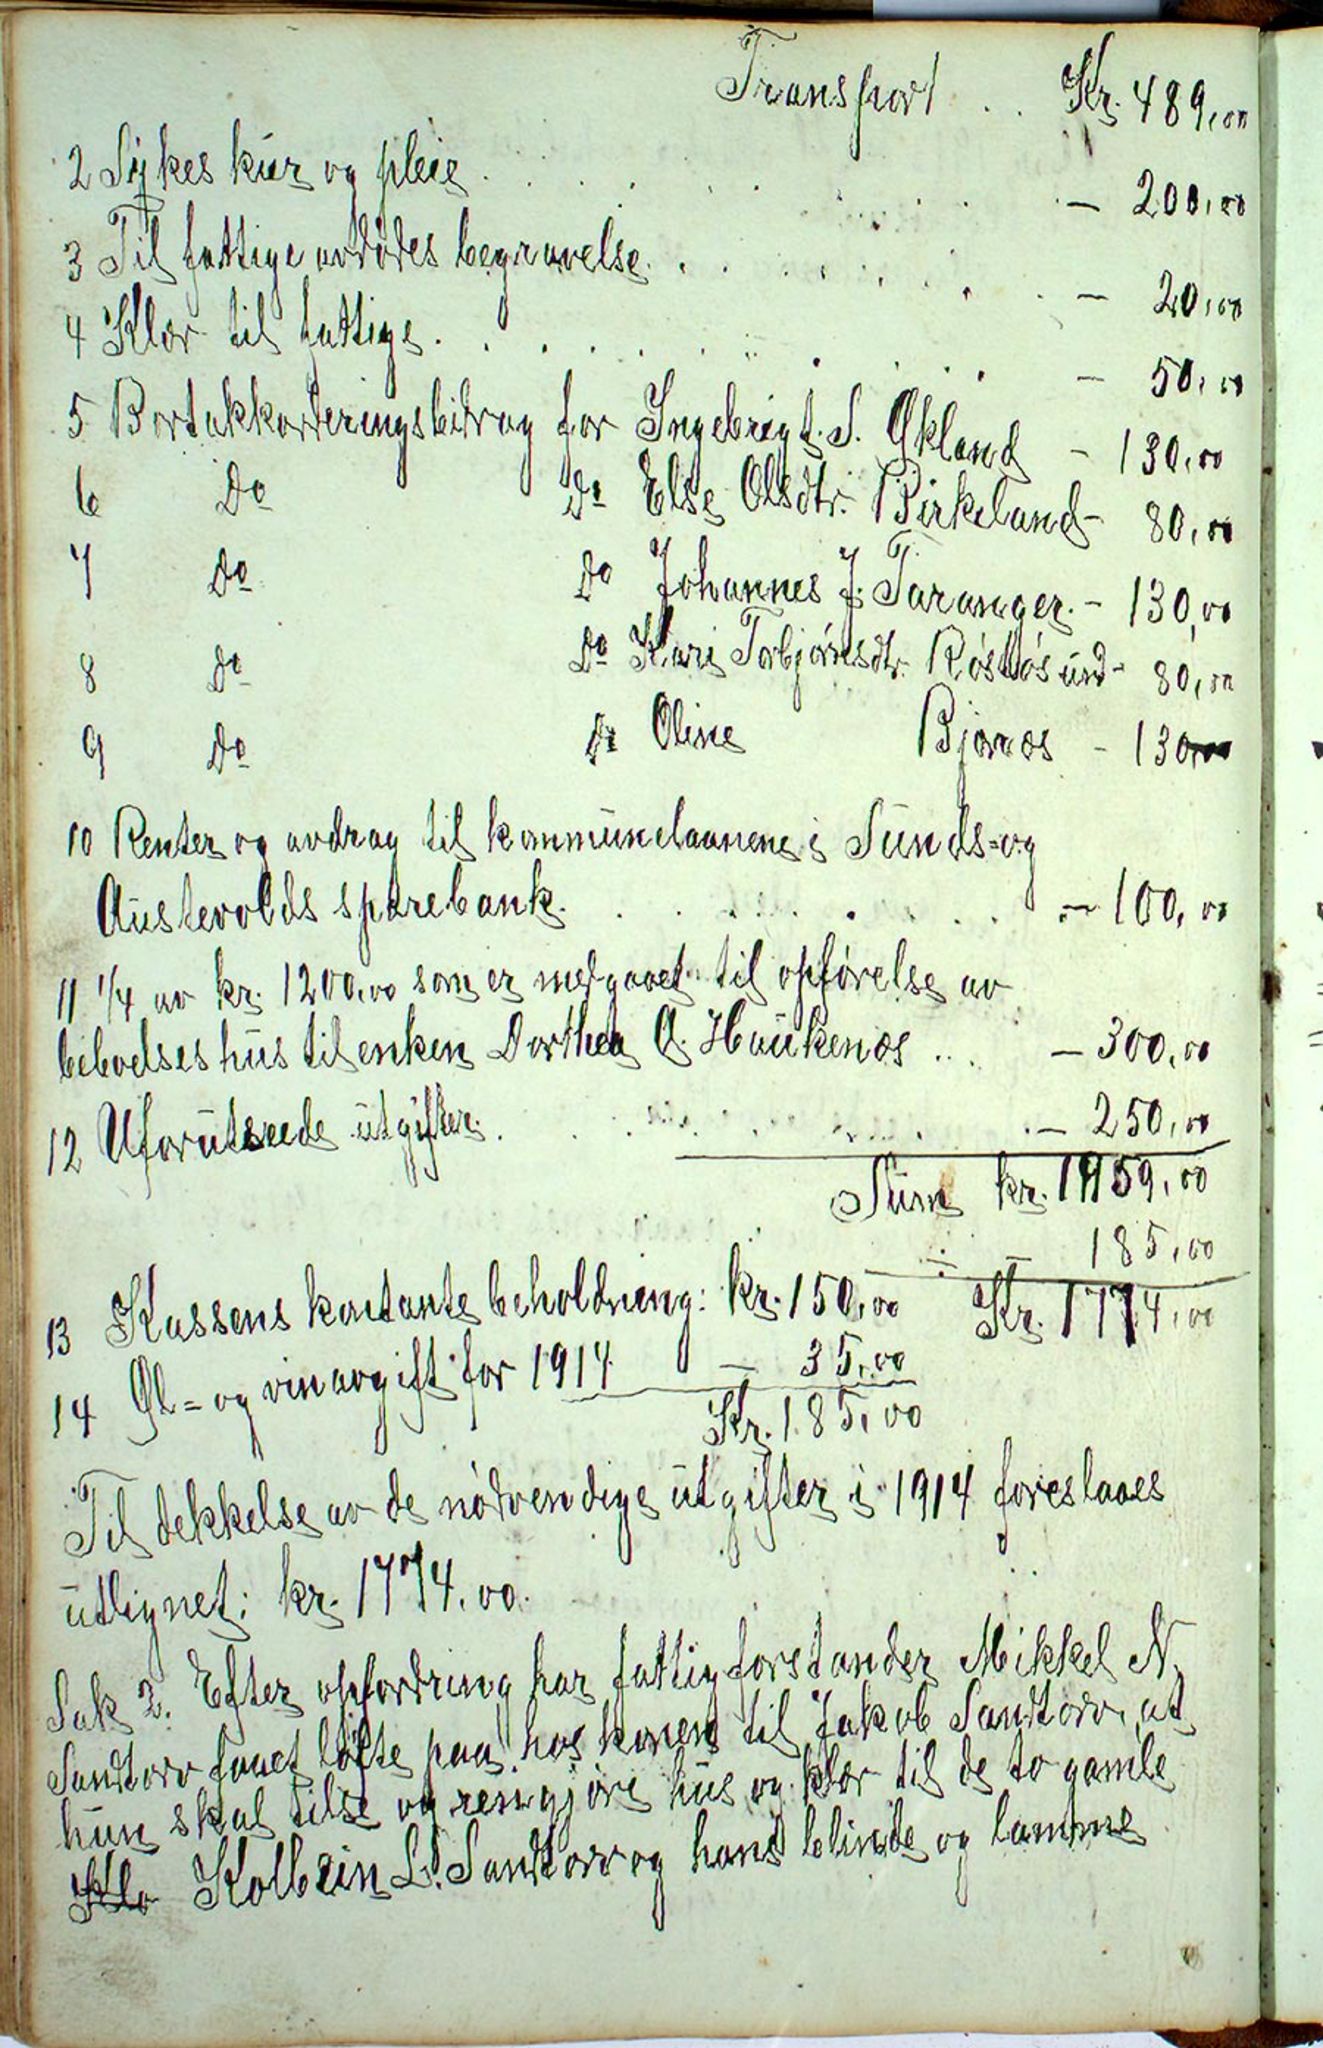 Transport . . Kr. 489,00
2 Sykes kur og pleie . . . . . . . . . — 200,00
3 Til fattige avdødes begravelse . . . . . . . — 20,00
4 Klær til fattige . . . . . . . . . — 50,00
5 Bortakkorderingsbidrag for Ingebrigt S. Økland — 130,00
6 Do Do Else Olsdtr. Birkeland — 80,00
7 Do Do Johannes J. Taranger. — 130,00
8 Do Do Kari Torbjørnsdtr. Röstøsund — 80,00
9 Do Do Oline Bjørnæs — 130,00
10 Renter og avdrag til kommunelaanene i Sunds= og
Austevolds sparebank . . . . . . . . — 100,00
11 1/4 av kr. 1200,00 som er medgaaet til opførelse av
beboelseshus til enken Dorthea O. Haukenæs . . . — 300,00
12 Uforutseede utgifter . . . . . . . . — 250,00
Sum kr. 1959,00
÷ — 185,00
13 Kassens kontante beholdning: kr. 150,00 Kr. 1774,00
14 Øl= og vinavgift for 1914 — 35,00
Kr. 185,00
Til dekkelse av de nødvendige utgifter i 1914 foreslaaes
utlignet: kr. 1774,00.
Sak 2. Efter opfordring har fattigforstander Mikkel N.
Sandtorv faaet løfte paa hos konen til Jakob Sandtorv, at
hun skal tilse og rengjøre hus og klær til de to gamle
Klo Kolbein L. Sandtorv og hans blinde og lamme